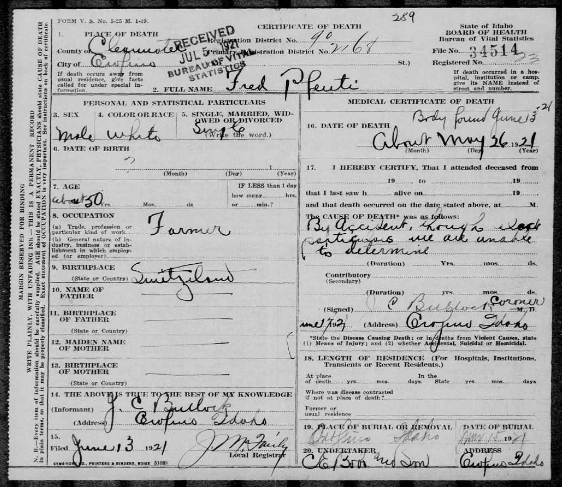 259
FORM V. S. No. 5-25 M. 1-19.
CERTIFICATE OF DEATH
State of Idaho
BOARD OF HEALTH
Bureau of Vital Statistics
1. PLACE OF DEATH
County of Clearwater
City of Orofino
If death occurs away from usual residence, give facts called for under special information.
RECEIVED
JUL 5 1921
BUREAU OF VITAL
STATISTICS
Registration District No. 90
Primary Registration District No. 2168
St.)
File No. 34514
Registered No. 23
If death occurred in a hospital, institution or camp, give its NAME instead of street and number.
2. FULL NAME Fred Pfenti
PERSONAL AND STATISTICAL PARTICULARS
3. SEX
4. COLOR OR RACE
5. SINGLE, MARRIED, WIDOWED OR DIVORCED
(Write the word.)
Male White Single
6. DATE OF BIRTH
?
(Month) (Day) (Year)
7. AGE
IF LESS than 1 day
how many hrs.
or min.?
about 50 Yrs. Mos. ds.
8. OCCUPATION
(a) Trade, profession or particular kind of work
(b) General nature of industry, business or establishment in which employed (or employer).
Farmer
9. BIRTHPLACE
(State or Country)
Switziland
10. NAME OF FATHER
11. BIRTHPLACE OF FATHER
(State or Country)
12. MAIDEN NAME OF MOTHER
13. BIRTHPLACE OF MOTHER
(State or Country)
14. THE ABOVE IS TRUE TO THE BEST OF MY KNOWLEDGE
(Informant) J. C Bullock
(Address) Orofino Idaho
15.
Filed June 13 1921
Local Registrar
MEDICAL CERTIFICATE OF DEATH
Body found June 13 - 21
16. DATE OF DEATH
About May 26 1921
(Month) (Day) (Year)
17. I HEREBY CERTIFY, That I attended deceased
from 19 to 19
that I last saw h alive on 19
and that death occurred on the date stated above, at M.
The CAUSE OF DEATH* was as follows:
By Accident, though
we are unable
to determine
(Duration) Yrs. mos. ds.
Contributory
(Secondary)
(Duration) Yrs. mos. ds.
(Signed) J C Bullock Coroner M. D.
(Address) Orofino Idaho
*State the Disease Causing Death; or in deaths from Violent Causes, state (1) Means of Injury; and (2) whether Accidental, Suicidal or Homicidal.
18. LENGTH OF RESIDENCE (For Hospitals, Institutions, Transients or Recent Residents.)
At place of death yrs. mos. days
In the State yrs. mos. days
Where was disease contracted if not at place of death?
Former or usual residence
19. PLACE OF BURIAL OR REMOVAL
DATE OF BURIAL
Orofino Idaho
20. UNDERTAKER
ADDRESS
and Son Orofino Idaho
MARGIN RESERVED FOR BINDING
WRITE PLAINLY, WITH UNFADING INK—THIS IS A PERMANENT RECORD